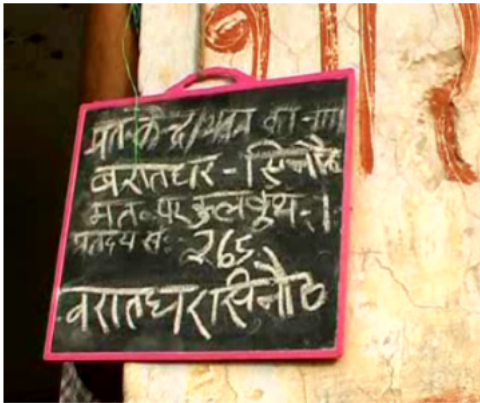 मत. के द्र/भवन का-नाम
बरातघर-सिनौठ
मत. पर कुल बुथ-1
मतदय सं:- 265
बरातघर सिनौठ